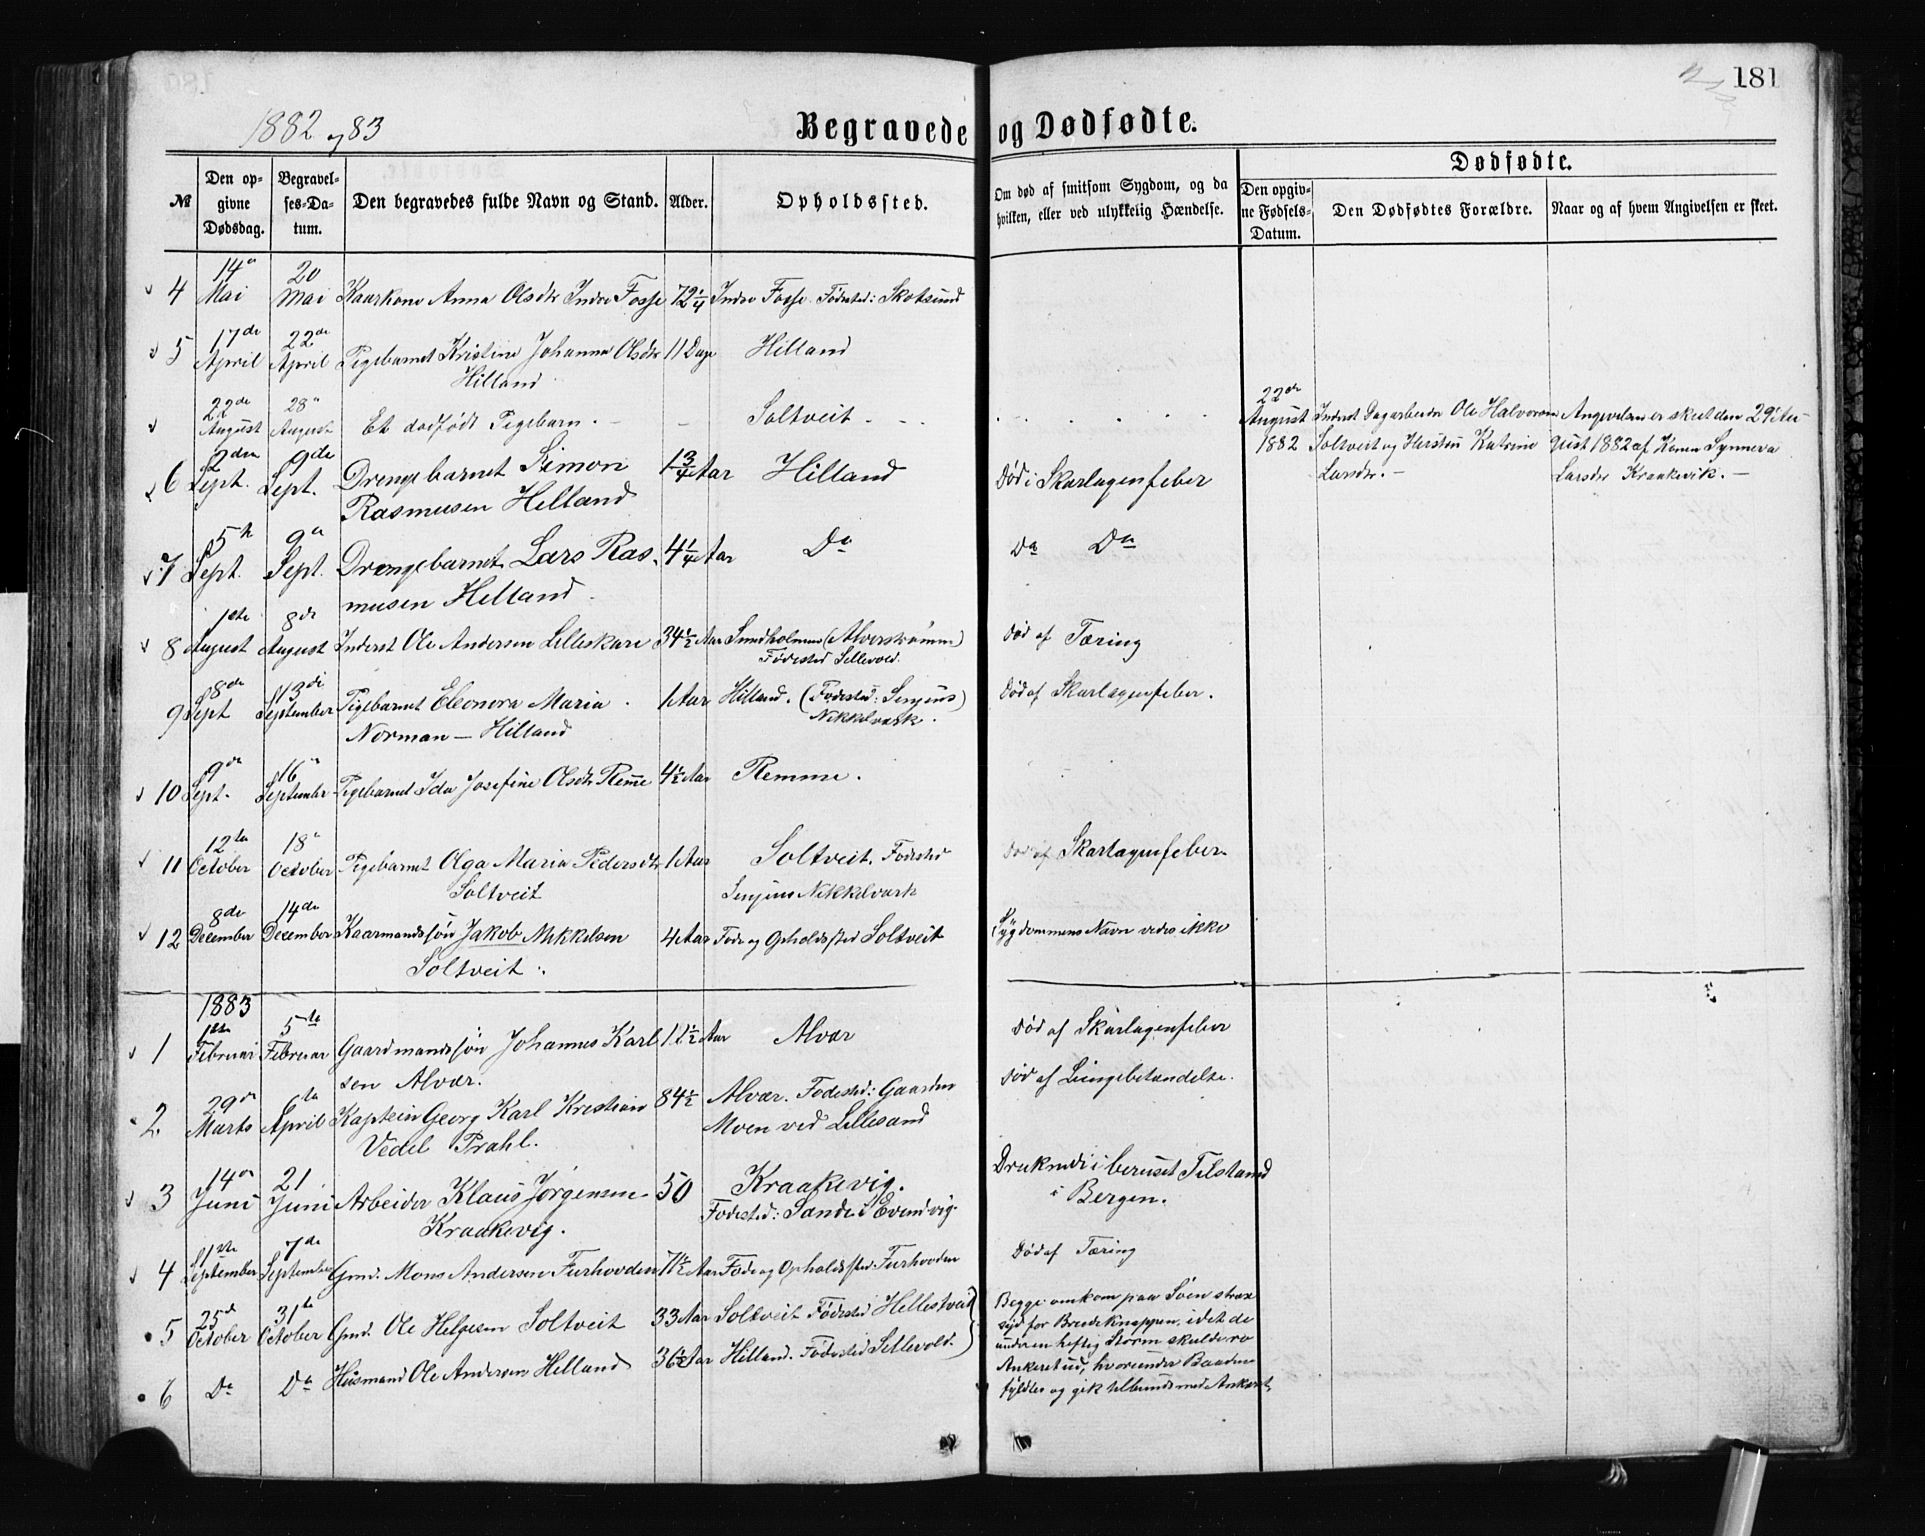 181
1882 og 83
Begravede og Dødfødte.
№
Den opgivne Dødsdag.
Begravelses-Datum.
Den begravedes fulde Navn og Stand.
Alder.
Opholdssted.
Om død af smitsom Sygdom, og da hvilken, eller ved ulykkelig Hændelse.
Dødfødte.
Den opgivne Fødsels-Datum.
Den Dødfødtes Forældre.
Naar og af hvem Angivelsen er skeet.
4 14de Mai 20 Mai Kaarkone Anna Olsdtr Indre Fosse 72 1/4 Indre Fosse. Fødested: Skotsund
5 17de April 22de April Pigebarnet Kristine Johanna Olsdtr 11 Dage Hilland
Hilland
22de August 28" August Et dødfødt Pigebarn. – – Soltveit – 22de August 1882 Inderst Dagarbeider Ole Halvorsen Angivelsen er skeet den 29de Au-
Soltveit og Hustru Katrine gust 1882 af Konen Synneva
Larsdtr. – Larsdtr Kraakevik. –
6 2den Sept. 9de Sept. Drengebarnet Simon 1 3/4 Aar Hilland Død i Skarlagenfeber
Rasmusen Helland
7 5te Sept. 9de Sept. Drengebarnet Lars Ras- 4 1/4 Aar Do Do Do
musen Helland
8 1ste August 8de August Inderst Ole Andersen Lilleskare 34 1/2 Aar Smedholmen (Alverstrømmen) Død af Tæring
Fødested Sellevold.
9 8de Sept 13de September Pigebarnet Eleonora Maria 1 Aar Hilland. (Fødested: Senjens) Død af Skarlagenfeber.
Norman – Hilland Nikkelværk.
10 9de Sept. 16" September Pigebarnet Ida Josefine Olsdtr Remme 4 1/2 Aar Remme.
11 12te October 18" October Pigebarnet Olga Maria Pedersdtr 1 Aar Soltveit. Fødested Død af Skarlagenfeber
Soltveit Senjens Nikkelværk
12 8de December 14de December Kaarmandssøn Jakob Mikkelsen 4 Aar Føde og Opholdssted Soltveit Sygdommens Navn vides ikke
Soltveit
1883
1 1ste Februar 5te Februar Gaardmandssøn Johannes Karl- 12 1/2 Aar Alvær Død af Skarlagenfeber
sen Alvær.
2. 29de Marts 6te April Kaptein Georg Karl Kristian 84 1/2 Alvær. Fødested: Gaarden Død af Lungebetændelse.
Vedel Prahl. Moen ved Lillesand
3 14de Juni 21 Juni Arbeider Klaus Jørgensen 50 Kraakevig. Druknede i beruset Tilstand
Kraakevig. Fødested: Sande i Evindvig. i Bergen.
4 1ste September 7de September Gmd. Mons Andersen Furhovden 71 1/2 Aar Føde og Opholdssted Furhovden Død af Tæring
5 25de October 31te October Gmd. Ole Helgesen Soltveit 33 Aar Soltveit Fødested Hellestveit
6 Do Do Husmand Ole Andersen Helland 36 1/2 Aar Hilland. Fødested Sellevold.
Begge omkom paa Søen strax
syd for Bredeknappen, idet de
under en heftig Storm skulde ro
Ankeret ud, hvorunder Baaden
fyldtes og gik tilbunds med Ankeret